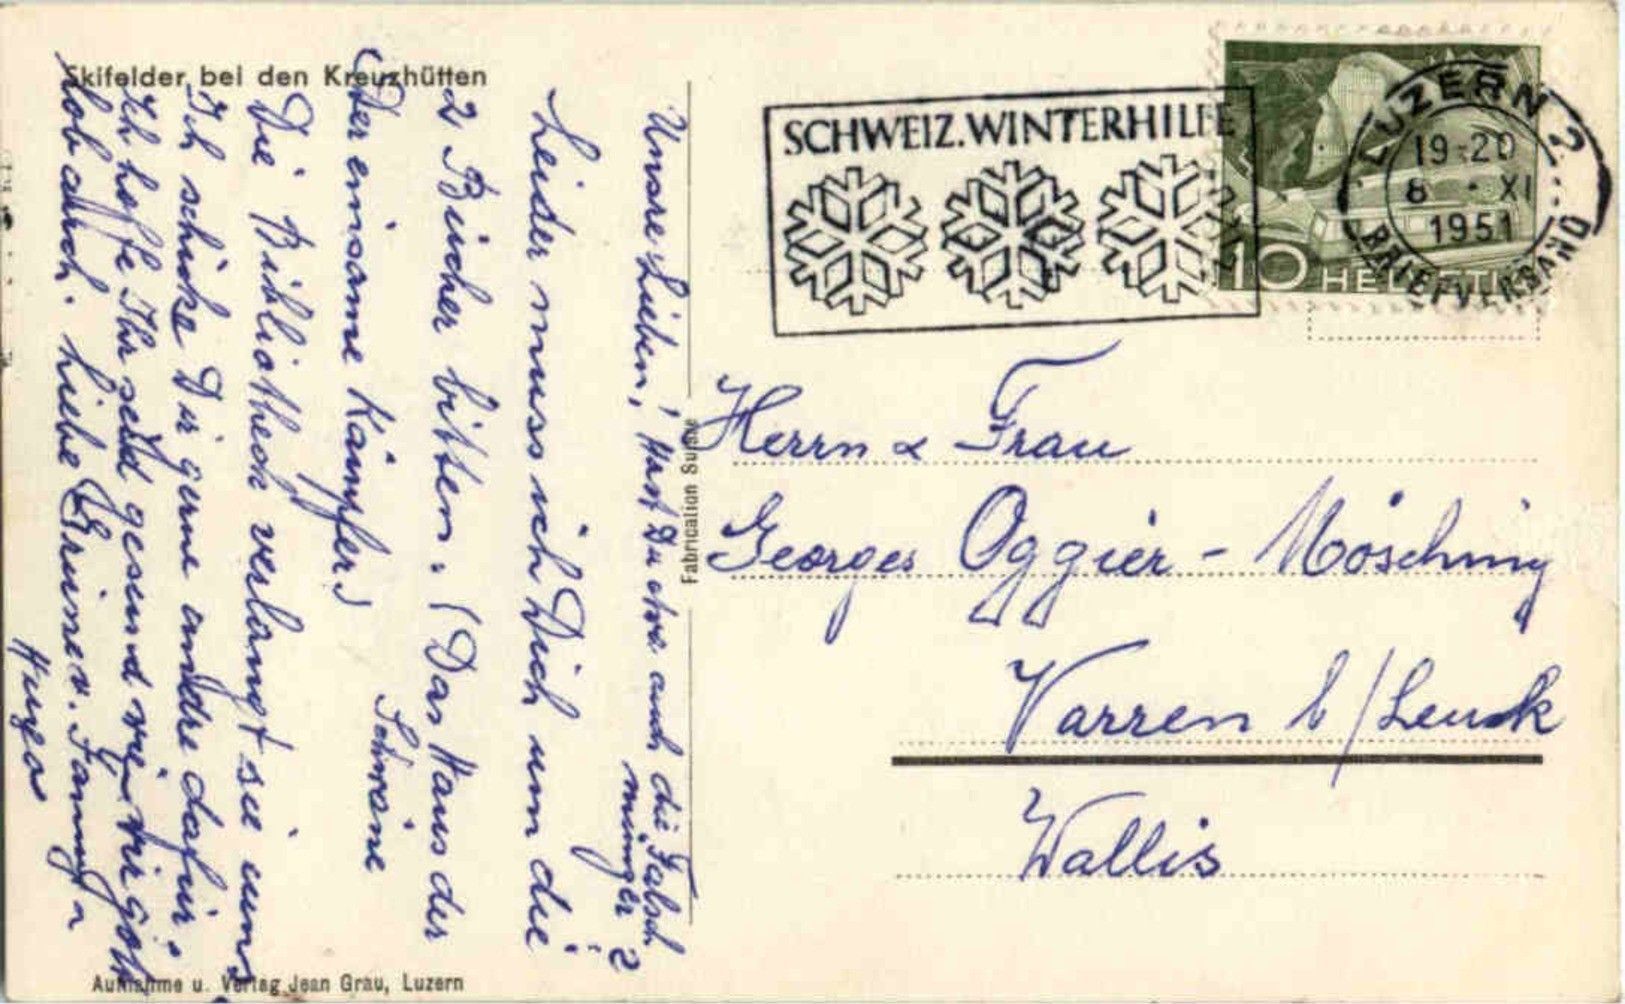 Skifelder bei den Kreuzhütten
Unsre Lieben! Hast Du etwa auch die Falschmünzer?
Leider muss ich Dich um die
2 Bücher bitten. (Das Haus der
Schwäne
Der einsame Kämpfer)
Die Bibliothek verlangt sie uns
Ich schicke Dir gerne andere dafür.
Ich hoffe Ihr seid gesund wie wir gott
lob auch. Liebe Grüsse v. Fanny &
Hugo
Fabrication Suisse
Aufnahme u. Verlag Jean Grau, Luzern
SCHWEIZ. WINTERHILFE
LUZERN 2
19-20
8 · XI
1951
BRIEFVERSAND
10 HELVETIA
Herrn & Frau
Georges Oggier-Mösching
Varren b/Leuk
Wallis